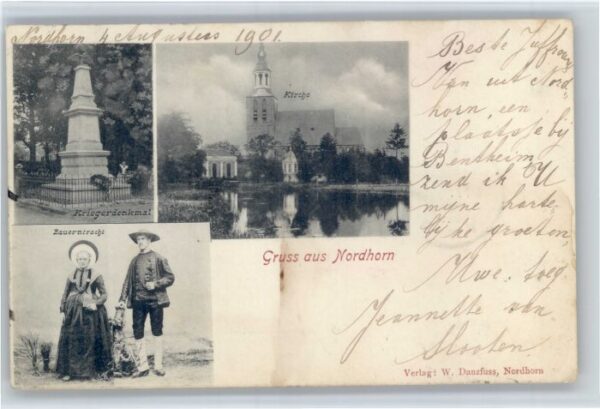 Nordhorn 4 Augustus 1901.
Kriegerdenkmal
Kirche
Bauerntracht
Gruss aus Nordhorn
Beste Juffrouw
Van uit Nord-
horn, een
plaatsje bij
Bentheim
zend ik U
mijne harte-
lijke groeten.
Uwe toeg.
Jeannette van
Slooten.
Verlag: W. Danzfuss, Nordhorn